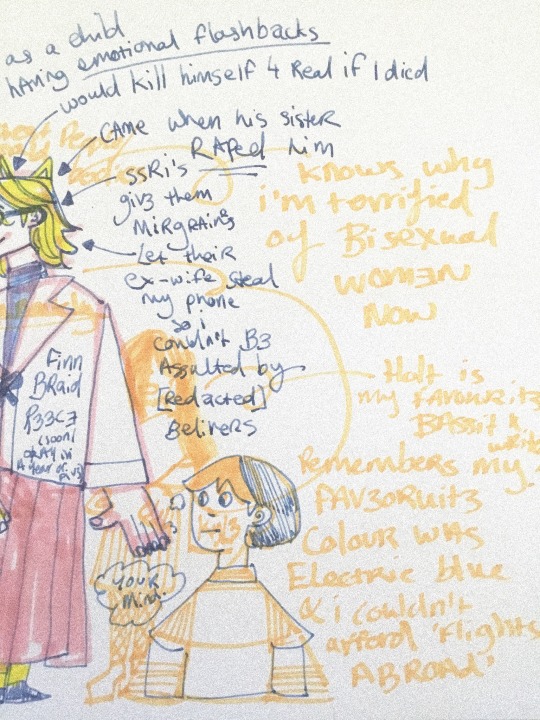 as a child
hAving emotional flashbacks
would kill himself 4 Real if I died
CAME when his sister
RAPed him
SSRi's
giv3 them
MiRgRAin3s
Let theiR
ex-wife steal
my phone
so i
couldn't B3
AssAulted by
[Redacted]
BeliveRs
knows why
i'm terrified
of Bisexual
women
Now
Finn
BRaid
P33C3
(soon)
Halt is
my favourit3
BAssist &
Remembers my
FAV3oRuit3
Colour wAs
Electric blue
& i couldn't
afford 'Flights
ABROAd'
YOUR
Mind